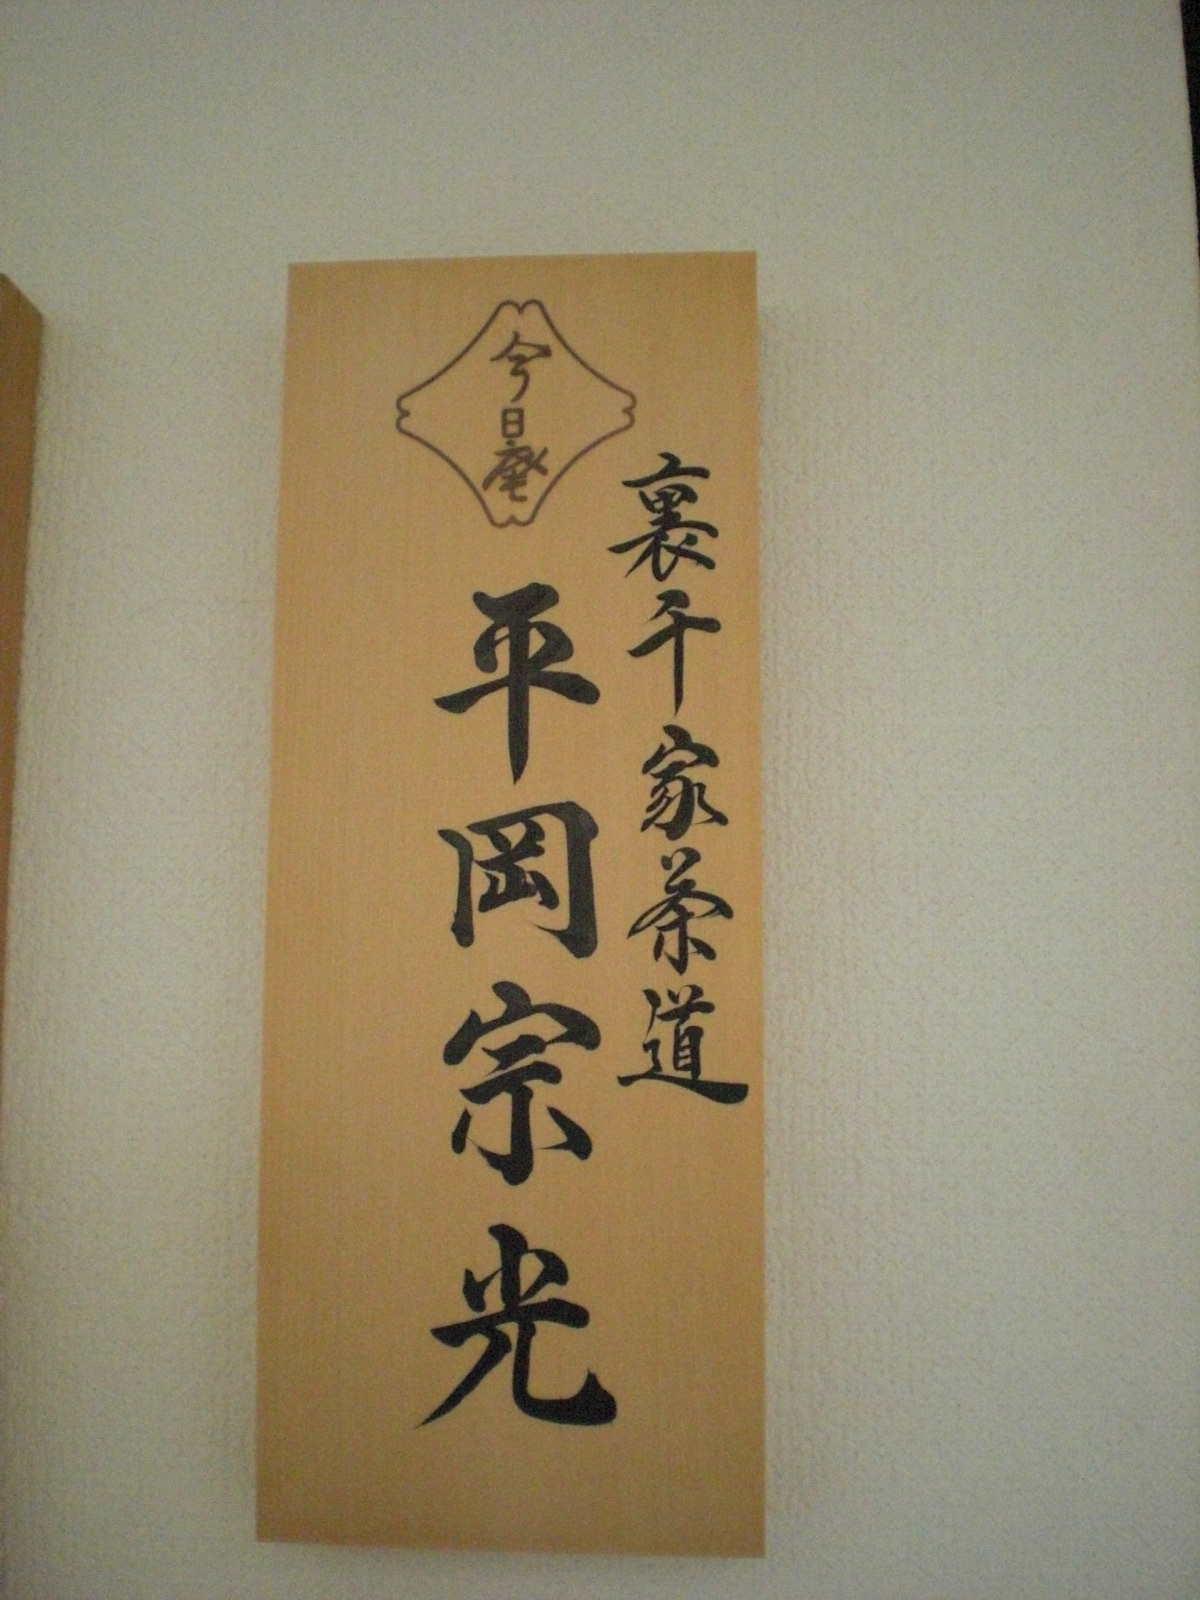 今日庵
裏千家茶道
平岡宗光